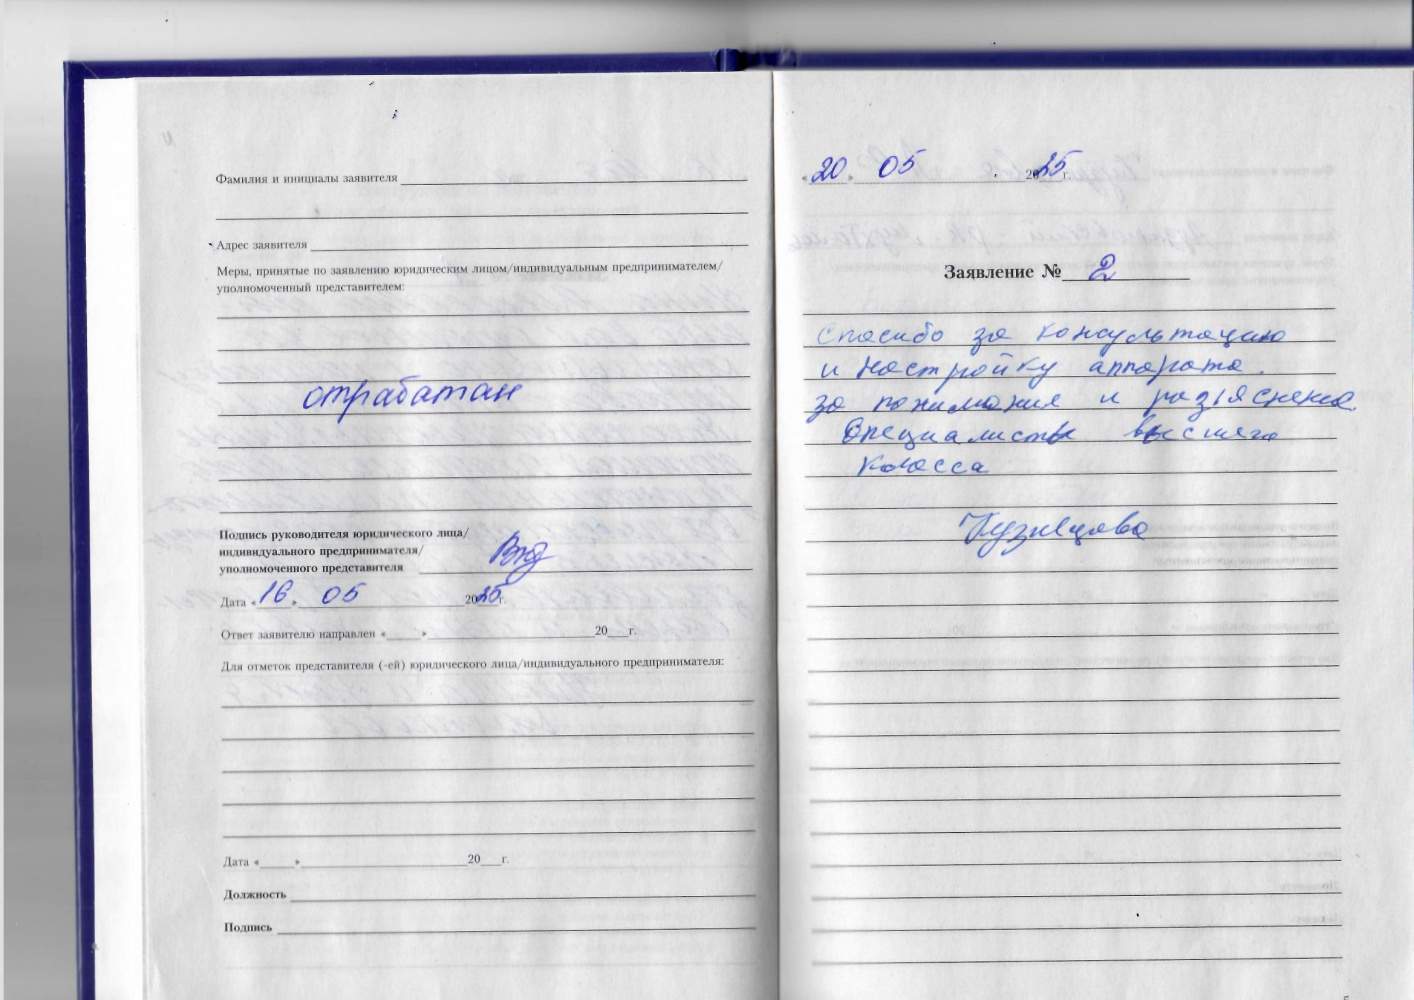 Фамилия и инициалы заявителя
Адрес заявителя
Меры, принятые по заявлению юридическим лицом/индивидуальным предпринимателем/
уполномоченный представителем:
отработан
Подпись руководителя юридического лица/
индивидуального предпринимателя/
уполномоченного представителя
Дата «16» 05 2025г.
Ответ заявителю направлен « » 20 г.
Для отметок представителя (-ей) юридического лица/индивидуального предпринимателя:
Дата « » 20 г.
Должность
Подпись
«20» 05 2025г.
Заявление № 2
Спасибо за консультацию
и настройку аппарата.
за понимание и разъяснение.
Специалисты высшего
класса